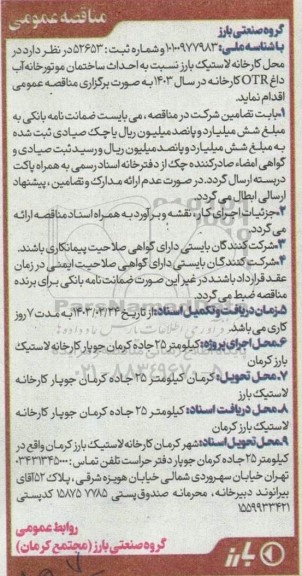 مناقصه عمومی
گروه صنعتی بارز
با شناسه ملی: ۱۰۱۰۰۹۷۷۹۸۳ و شماره ثبت: ۵۲۶۵۳ در نظر دارد در
محل کارخانه لاستیک بارز نسبت به احداث ساختمان موتورخانه آب
داغ OTR کارخانه در سال ۱۴۰۳ به صورت برگزاری مناقصه عمومی
اقدام نماید.
۱-بابت تضامین شرکت در مناقصه، می بایست ضمانت نامه بانکی به
مبلغ شش میلیارد و پانصد میلیون ریال یا چک صیادی ثبت شده
به مبلغ شش میلیارد و پانصد میلیون ریال و رسید ثبت صیادی و
گواهی امضاء صادرکننده چک از دفترخانه اسناد رسمی به همراه پاکت
دربسته ارسال گردد. در صورت عدم ارائه مدارک و تضامین، پیشنهاد
ارسالی ابطال می گردد.
۲-جزئیات اجرای کار، نقشه و برآورد به همراه اسناد مناقصه ارائه
می گردد.
۳-شرکت کنندگان بایستی دارای گواهی صلاحیت پیمانکاری باشند.
۴-شرکت کنندگان بایستی دارای گواهی صلاحیت ایمنی در زمان
عقد قرارداد باشند در غیر این صورت ضمانت نامه بانکی برای برنده
مناقصه ضبط می گردد.
۵-زمان دریافت و تکمیل اسناد: از تاریخ ۱۴۰۳/۰۲/۲۴ به مدت ۷ روز
کاری می باشد.
۶-محل اجرای پروژه: کیلومتر ۲۵ جاده کرمان جوپار کارخانه لاستیک
بارز کرمان
۷-محل تحویل: کرمان کیلومتر ۲۵ جاده کرمان جوپار کارخانه
لاستیک بارز
۸-محل دریافت اسناد: کیلومتر ۲۵ جاده کرمان جوپار کارخانه
لاستیک بارز کرمان
۹-محل تحویل اسناد: شهر کرمان کارخانه لاستیک بارز کرمان واقع در
کیلومتر ۲۵ جاده کرمان جوپار دفتر حراست تلفن تماس: ۰۳۴۳۱۳۴۵۰۰۰
تهران خیابان سهروردی شمالی خیابان هویزه شرقی، پلاک ۵۲ آقای
بیرانوند دبیرخانه، محرمانه صندوق پستی ۷۷۸۵ ۱۵۸۷۵ کدپستی
۱۵۵۹۹۳۳۴۲۱
روابط عمومی
گروه صنعتی بارز (مجتمع کرمان)
بارز